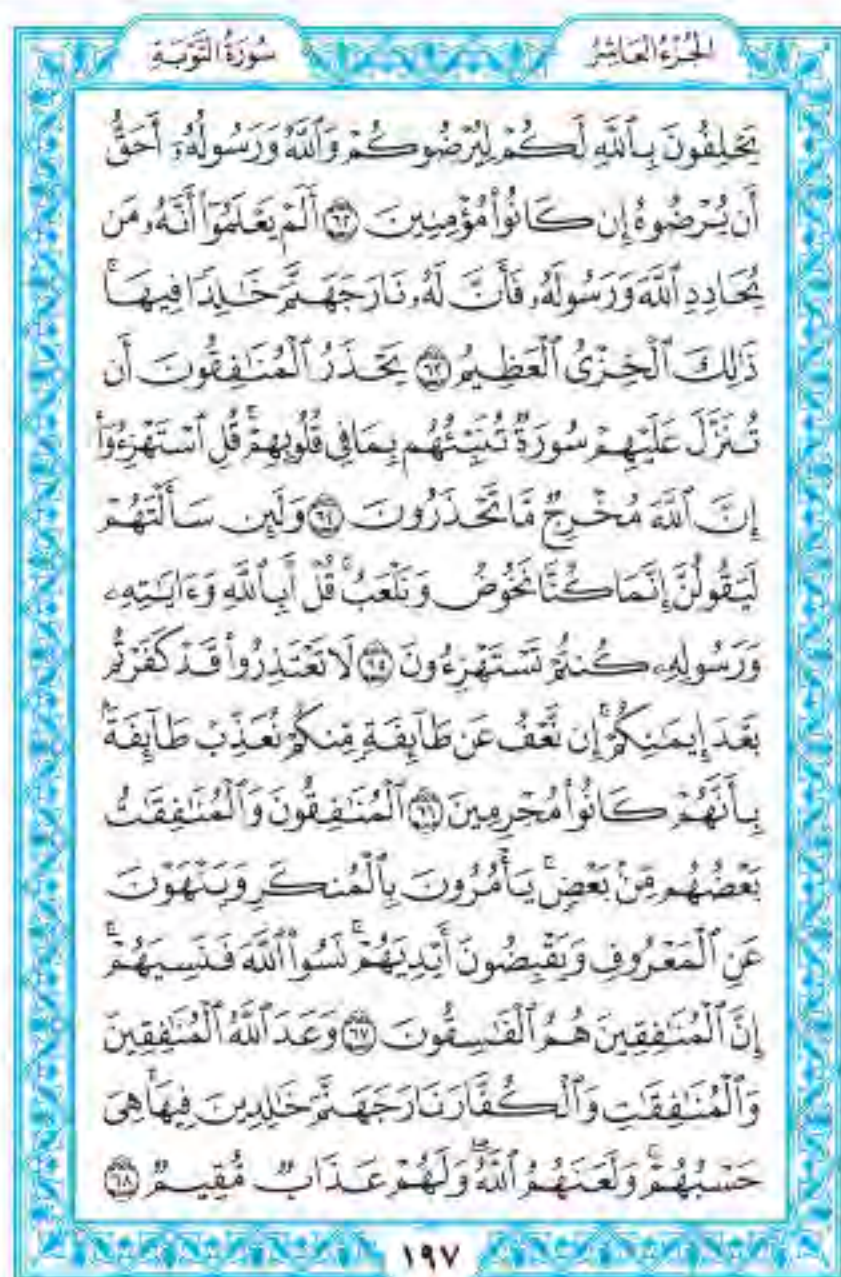 الجُزْءُ العَاشِرُ
سُورَةُ التَّوْبَةِ
يَحْلِفُونَ بِٱللَّهِ لَكُمْ لِيُرْضُوكُمْ وَٱللَّهُ وَرَسُولُهُۥٓ أَحَقُّ
أَن يُرْضُوهُ إِن كَانُوا۟ مُؤْمِنِينَ ٦٢ أَلَمْ يَعْلَمُوٓا۟ أَنَّهُۥ مَن
يُحَادِدِ ٱللَّهَ وَرَسُولَهُۥ فَأَنَّ لَهُۥ نَارَ جَهَنَّمَ خَـٰلِدًا فِيهَا ۚ
ذَٰلِكَ ٱلْخِزْىُ ٱلْعَظِيمُ ٦٣ يَحْذَرُ ٱلْمُنَـٰفِقُونَ أَن
تُنَزَّلَ عَلَيْهِمْ سُورَةٌ تُنَبِّئُهُم بِمَا فِى قُلُوبِهِمْ ۚ قُلِ ٱسْتَهْزِءُوٓا۟
إِنَّ ٱللَّهَ مُخْرِجٌ مَّا تَحْذَرُونَ ٦٤ وَلَئِن سَأَلْتَهُمْ
لَيَقُولُنَّ إِنَّمَا كُنَّا نَخُوضُ وَنَلْعَبُ ۚ قُلْ أَبِٱللَّهِ وَءَايَـٰتِهِۦ
وَرَسُولِهِۦ كُنتُمْ تَسْتَهْزِءُونَ ٦٥ لَا تَعْتَذِرُوا۟ قَدْ كَفَرْتُم
بَعْدَ إِيمَـٰنِكُمْ ۚ إِن نَّعْفُ عَن طَآئِفَةٍ مِّنكُمْ نُعَذِّبْ طَآئِفَةًۢ
بِأَنَّهُمْ كَانُوا۟ مُجْرِمِينَ ٦٦ ٱلْمُنَـٰفِقُونَ وَٱلْمُنَـٰفِقَـٰتُ
بَعْضُهُم مِّنۢ بَعْضٍ ۚ يَأْمُرُونَ بِٱلْمُنكَرِ وَيَنْهَوْنَ
عَنِ ٱلْمَعْرُوفِ وَيَقْبِضُونَ أَيْدِيَهُمْ ۚ نَسُوا۟ ٱللَّهَ فَنَسِيَهُمْ ۗ
إِنَّ ٱلْمُنَـٰفِقِينَ هُمُ ٱلْفَـٰسِقُونَ ٦٧ وَعَدَ ٱللَّهُ ٱلْمُنَـٰفِقِينَ
وَٱلْمُنَـٰفِقَـٰتِ وَٱلْكُفَّارَ نَارَ جَهَنَّمَ خَـٰلِدِينَ فِيهَا ۚ هِىَ
حَسْبُهُمْ ۚ وَلَعَنَهُمُ ٱللَّهُ ۖ وَلَهُمْ عَذَابٌ مُّقِيمٌ ٦٨
١٩٧